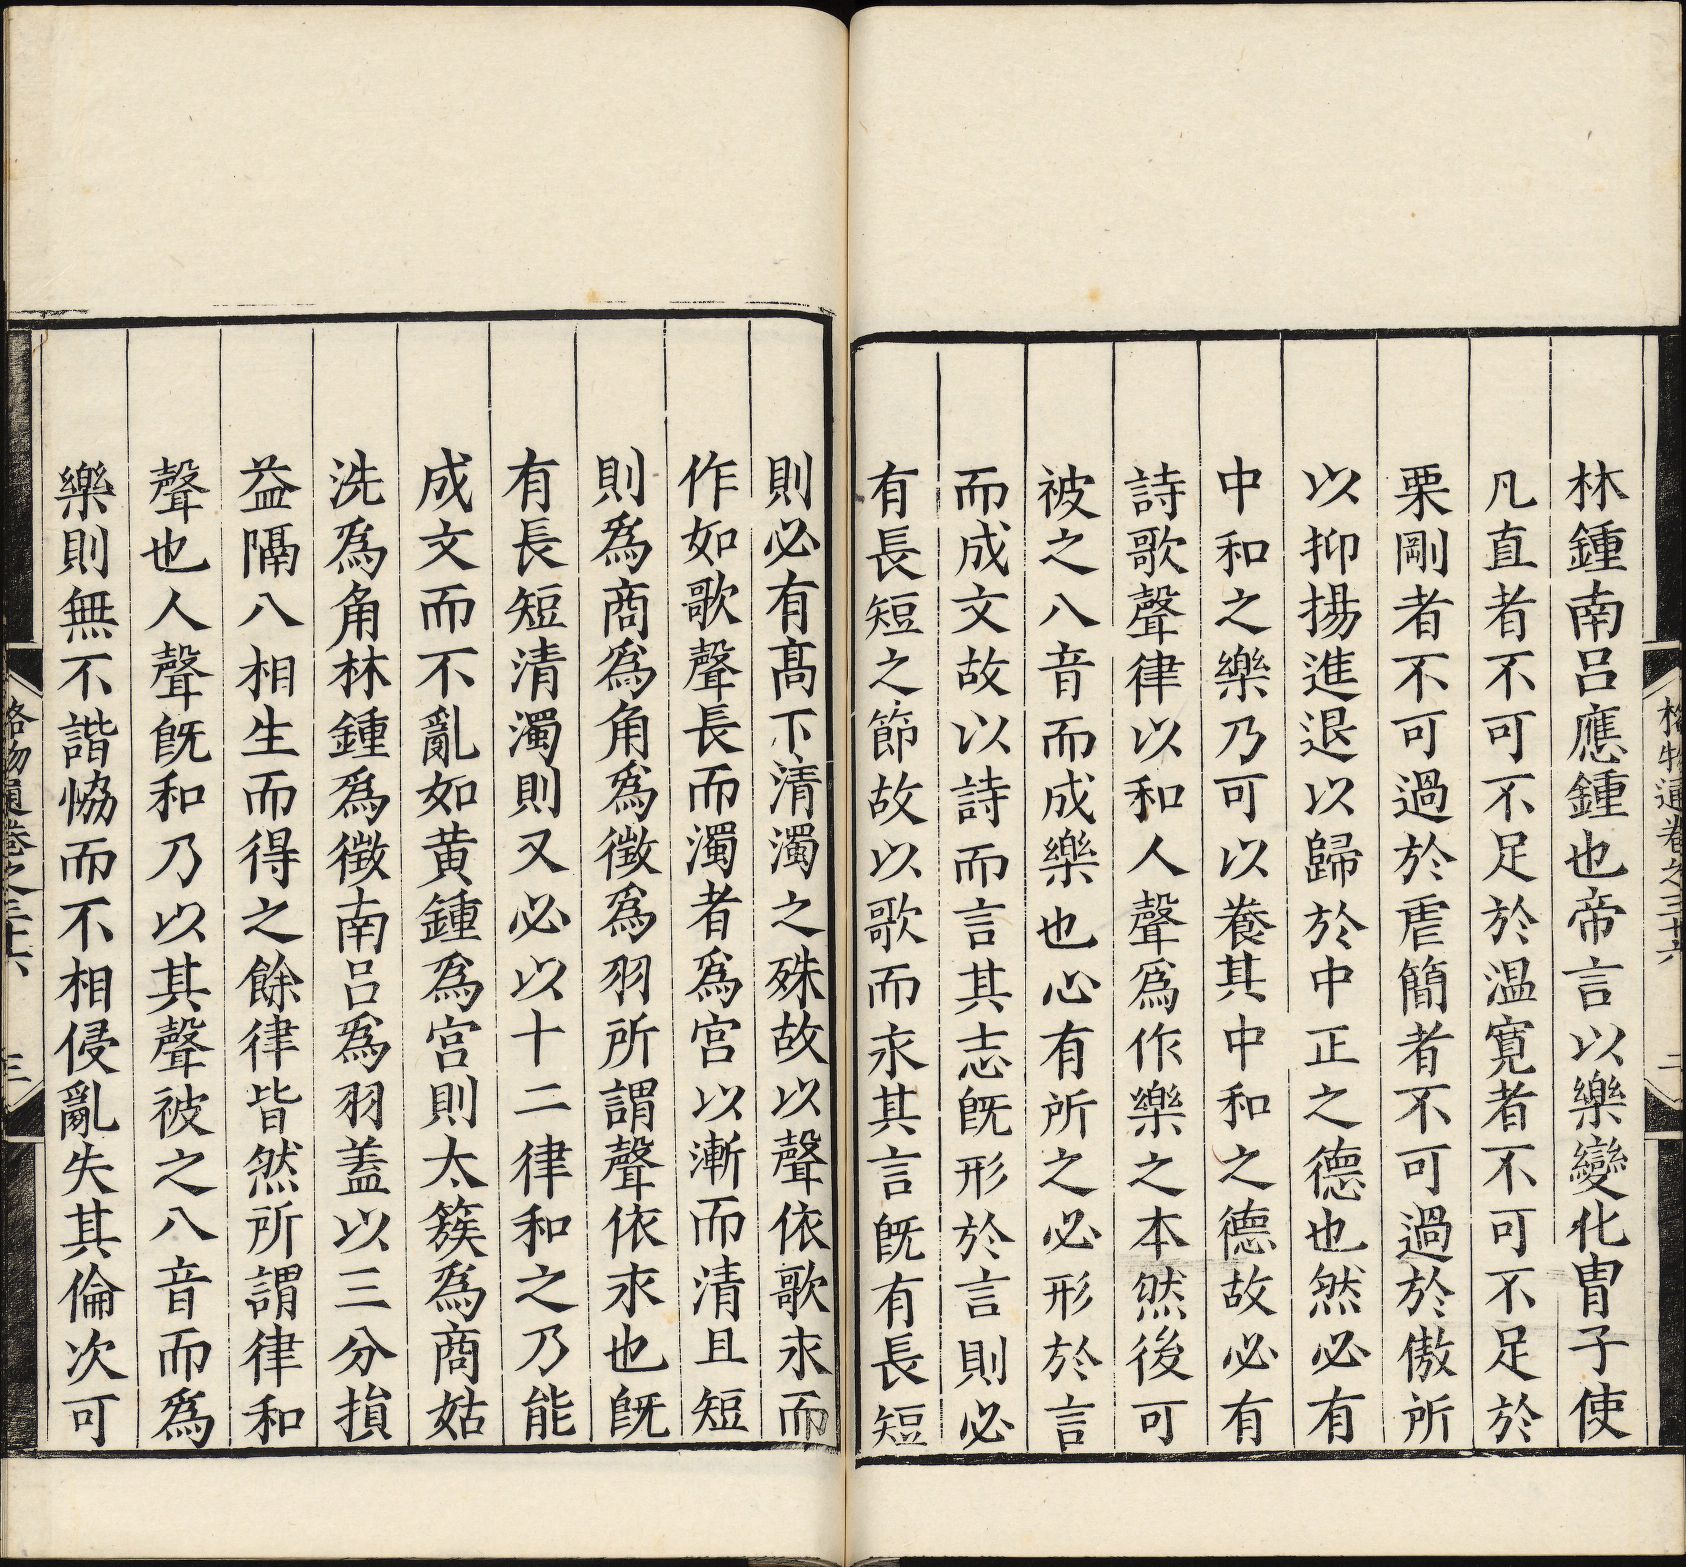 格物通卷之三十六 二
林鍾南呂應鍾也帝言以樂變化胄子使
凡直者不可不足於溫寬者不可不足於
栗剛者不可過於虐簡者不可過於傲所
以抑揚進退以歸於中正之德也然必有
中和之樂乃可以養其中和之德故必有
詩歌聲律以和人聲爲作樂之本然後可
被之八音而成樂也心有所之必形於言
而成文故以詩而言其志旣形於言則必
有長短之節故以歌而永其言旣有長短
則必有高下清濁之殊故以聲依歌永而
作如歌聲長而濁者爲宮以漸而清且短
則爲商爲角爲徵爲羽所謂聲依永也旣
有長短清濁則又必以十二律和之乃能
成文而不亂如黃鍾爲宮則太簇爲商姑
洗爲角林鍾爲徵南呂爲羽蓋以三分損
益隔八相生而得之餘律皆然所謂律和
聲也人聲旣和乃以其聲被之八音而爲
樂則無不諧恊而不相侵亂失其倫次可
格物通卷之三十六 三